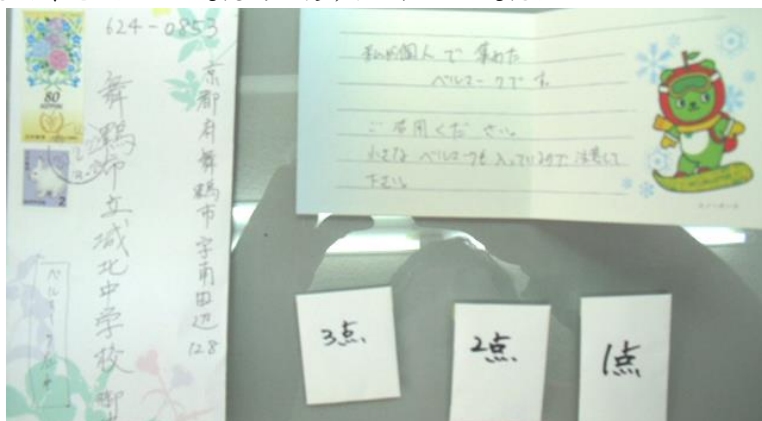 624-0853
京都府舞鶴市字南田辺
128
舞鶴市立城北中学校 御中
80
NIPPON
2
私が個人で集めた
ベルマークです。
ご活用ください。
小さなベルマークも入っているので注意して
下さい。
3点
2点
1点